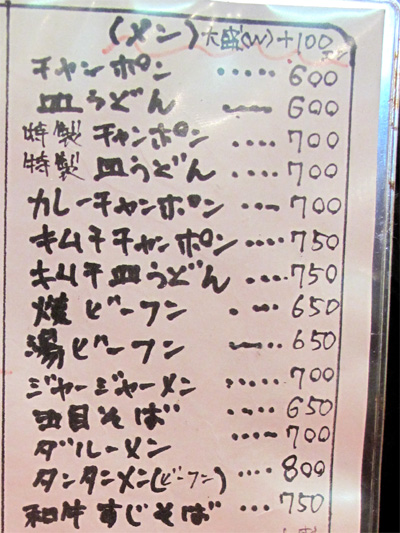 (メン) 大盛(W)+100
チャンポン ‥‥ 600
皿うどん ‥‥ 600
特製 チャンポン ‥‥ 700
特製 皿うどん ‥‥ 700
カレーチャンポン ‥‥ 700
キムチチャンポン ‥‥ 750
キムチ皿うどん ‥‥ 750
焼ビーフン ‥‥ 650
湯ビーフン ‥‥ 650
ジャージャーメン ‥‥ 700
油そば ‥‥ 650
ダルーメン ‥‥ 700
タンタンメン(ビーフン) ‥‥ 800
和牛すじそば ‥‥ 750